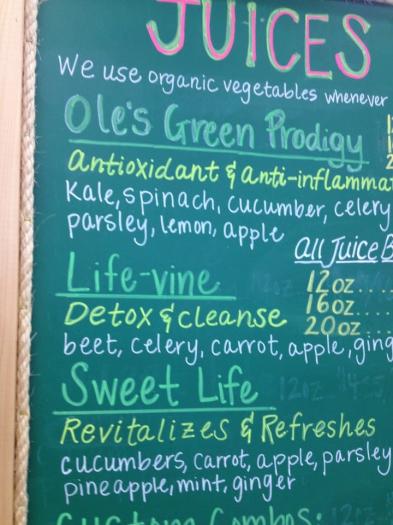 JUICES
We use organic vegetables whenever
Ole's Green Prodigy
Antioxidant & anti-inflamma
Kale, spinach, cucumber, celery
parsley, lemon, apple
All Juice B
Life-vine
12 oz....
16 oz....
20 oz....
Detox & cleanse
beet, celery, carrot, apple, ging
Sweet Life
Revitalizes & Refreshes
cucumbers, carrot, apple, parsley
pineapple, mint, ginger
Custom Combos: